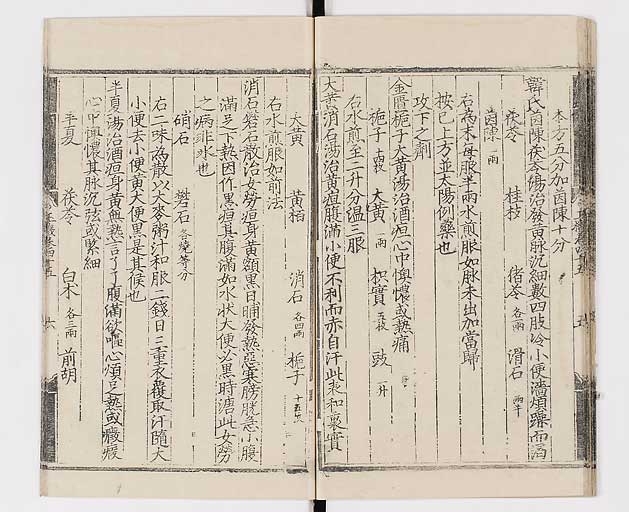 本方五分加茵陳十分
韓氏茵陳茯苓湯治發黃脉沉細數四肢冷小便澁煩躁而渴
茯苓 桂枝 猪苓各一兩 滑石一兩半
茵陳一兩
右為末每服半兩水煎服如脉未出加當歸
按已上方並太陽例藥也
攻下之劑
金匱梔子大黃湯治酒疸心中懊憹或熱痛
梔子十四枚 大黃一兩 枳實五枚 豉一升
右水煎至二升分温三服
大黃消石湯治黃疸腹滿小便不利而赤自汗此表和裏實
大黃 黃栢 消石各四兩 梔子十五枚
右水煎服如前法
消石礬石散治女勞疸身黃額黑日晡發熱惡寒膀胱急小腹
滿足下熱因作黑疸其腹滿如水狀大便必黑時溏此女勞
之病非水也
硝石 礬石各燒等分
右二味為散以大麥粥汁和服二錢日三重衣覆取汗隨大
小便去小便黃大便黑是其候也
半夏湯治酒疸身黃無熱言了了腹滿欲嘔心煩足熱或癥瘕
心中懊憹其脉沉弦或緊細
半夏 茯苓 白朮各三兩 前胡